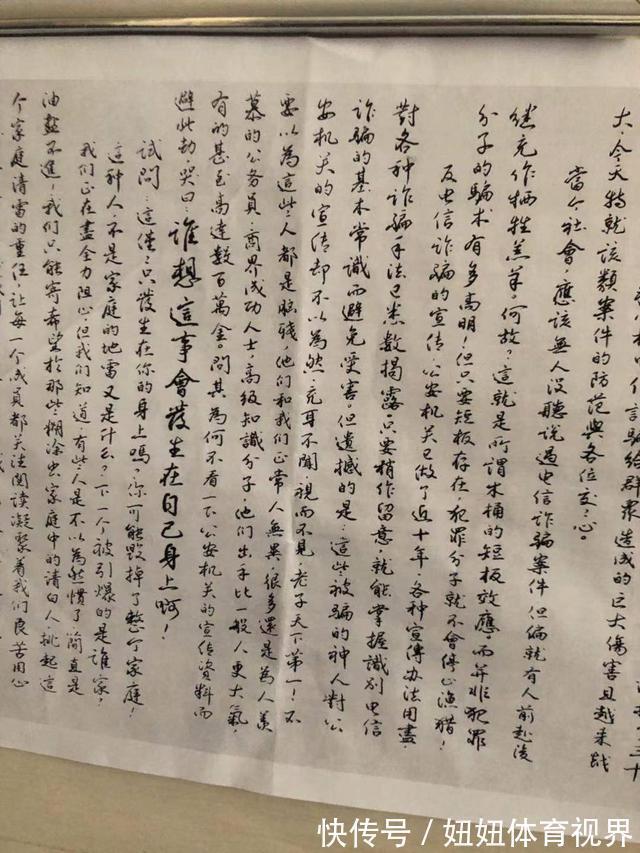 三十
言騙給群眾造成的巨大傷害且越来越
大，今天特就該類案件的防范與各位交心。
當今社會，應該無人没聽說過电信诈骗案件 但偏就有人前赴後
继充作牺牲羔羊。何故？這就是所謂木桶的短板效應而并非犯罪
分子的騙术有多高明！但只要短板存在，犯罪分子就不會停止渔猎！
反电信诈骗的宣传 公安机关已做了近十年，各种宣傳办法用盡，
對各种诈骗手法已悉數揭露，只要稍作留意，就能掌握識别电信
诈骗的基本常識而避免受害。但遺撼的是：這些被骗的神人對公
安机关的宣传却不以為然，充耳不聞，視而不見，老子天下第一！不
要以為這些人都是脑残，他们和我们正常人無異，很多還是為人羡
慕的公务員，商界成功人士，高级知識分子，他们出手比一般人更大氣，
有的甚至高達数百萬金。問其為何不看一下公安机关的宣传資料而
避此劫，哭曰：誰想這事會發生在自己身上啊！
試問：這僅僅只發生在你的身上嗎？你可能毁掉了整个家庭！
這种人，不是家庭的地雷又是什么？下一个被引爆的是誰家！
我们正在盡全力阻止，但我们知道有些人是不以為然慣了，简直是
油盐不進！我们只能寄希望於那些糊涂虫家庭中的清白人，挑起這
个家庭清雷的重任，让每一个成員都关注阅读凝聚着我们良苦用心
快传号／妞妞体育视界